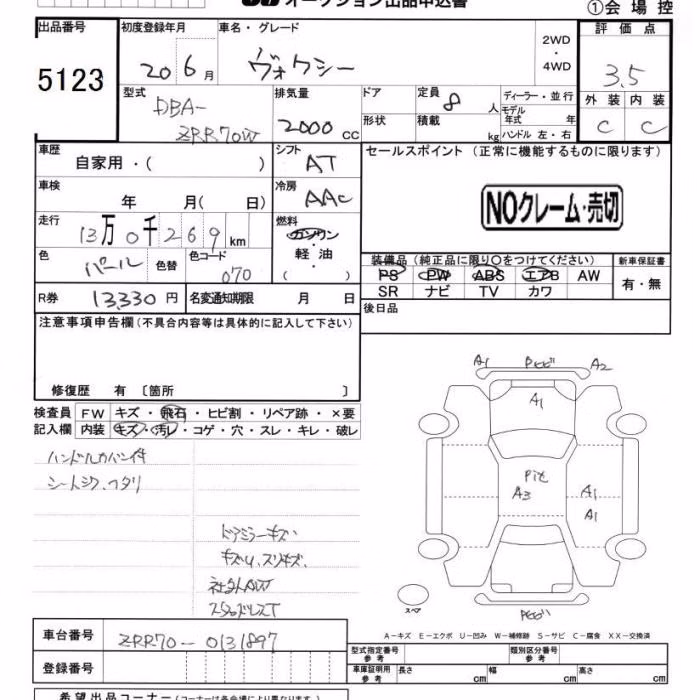 オークション出品申込書
①会場控
出品番号
5123
初度登録年月
20 6月
車名・グレード
ヴォクシー
2WD
・
4WD
評価点
3.5
外装 内装
C C
型式
DBA-
ZRR70W
排気量
2000 CC
ドア
形状
定員 8 人
積載 kg
ディーラー・並行
モデル年式 年
ハンドル 左・右
車歴
自家用・( )
シフト
AT
セールスポイント (正常に機能するものに限ります)
NOクレーム・売切
車検
年 月( 日)
冷房
AAC
走行
13万0千269km
燃料
ガソリン
・
軽油
( )
色
パール
色替
色コード
070
装備品(純正品に限り〇をつけてください)
PS PW ABS エアB AW
SR ナビ TV カワ
新車保証書
有・無
R券 13,330円
名変通知期限 月 日
後日品
注意事項申告欄(不具合内容等は具体的に記入して下さい)
修復歴 有 〔箇所 〕
検査員
記入欄
FW キズ・飛石・ヒビ割・リペア跡・×要
内装 キズ・汚レ・コゲ・穴・スレ・キレ・破レ
ハンドルカバー付
シートシワ、ヘタリ
ドアミラーキズ
キズ小、スリキズ、
A1 A2
A1
A3
A1
A1
スペア
A-キズ E-エクボ U-凹み W-補修跡 S-サビ C-腐食 XX-交換済
車台番号
ZRR70-0131897
登録番号
型式指定番号
参考
類別区分番号
参考
車庫証明用
参考
長さ cm
幅 cm
高さ cm
希望出品コーナー(コーナーは各会場により異なります。)